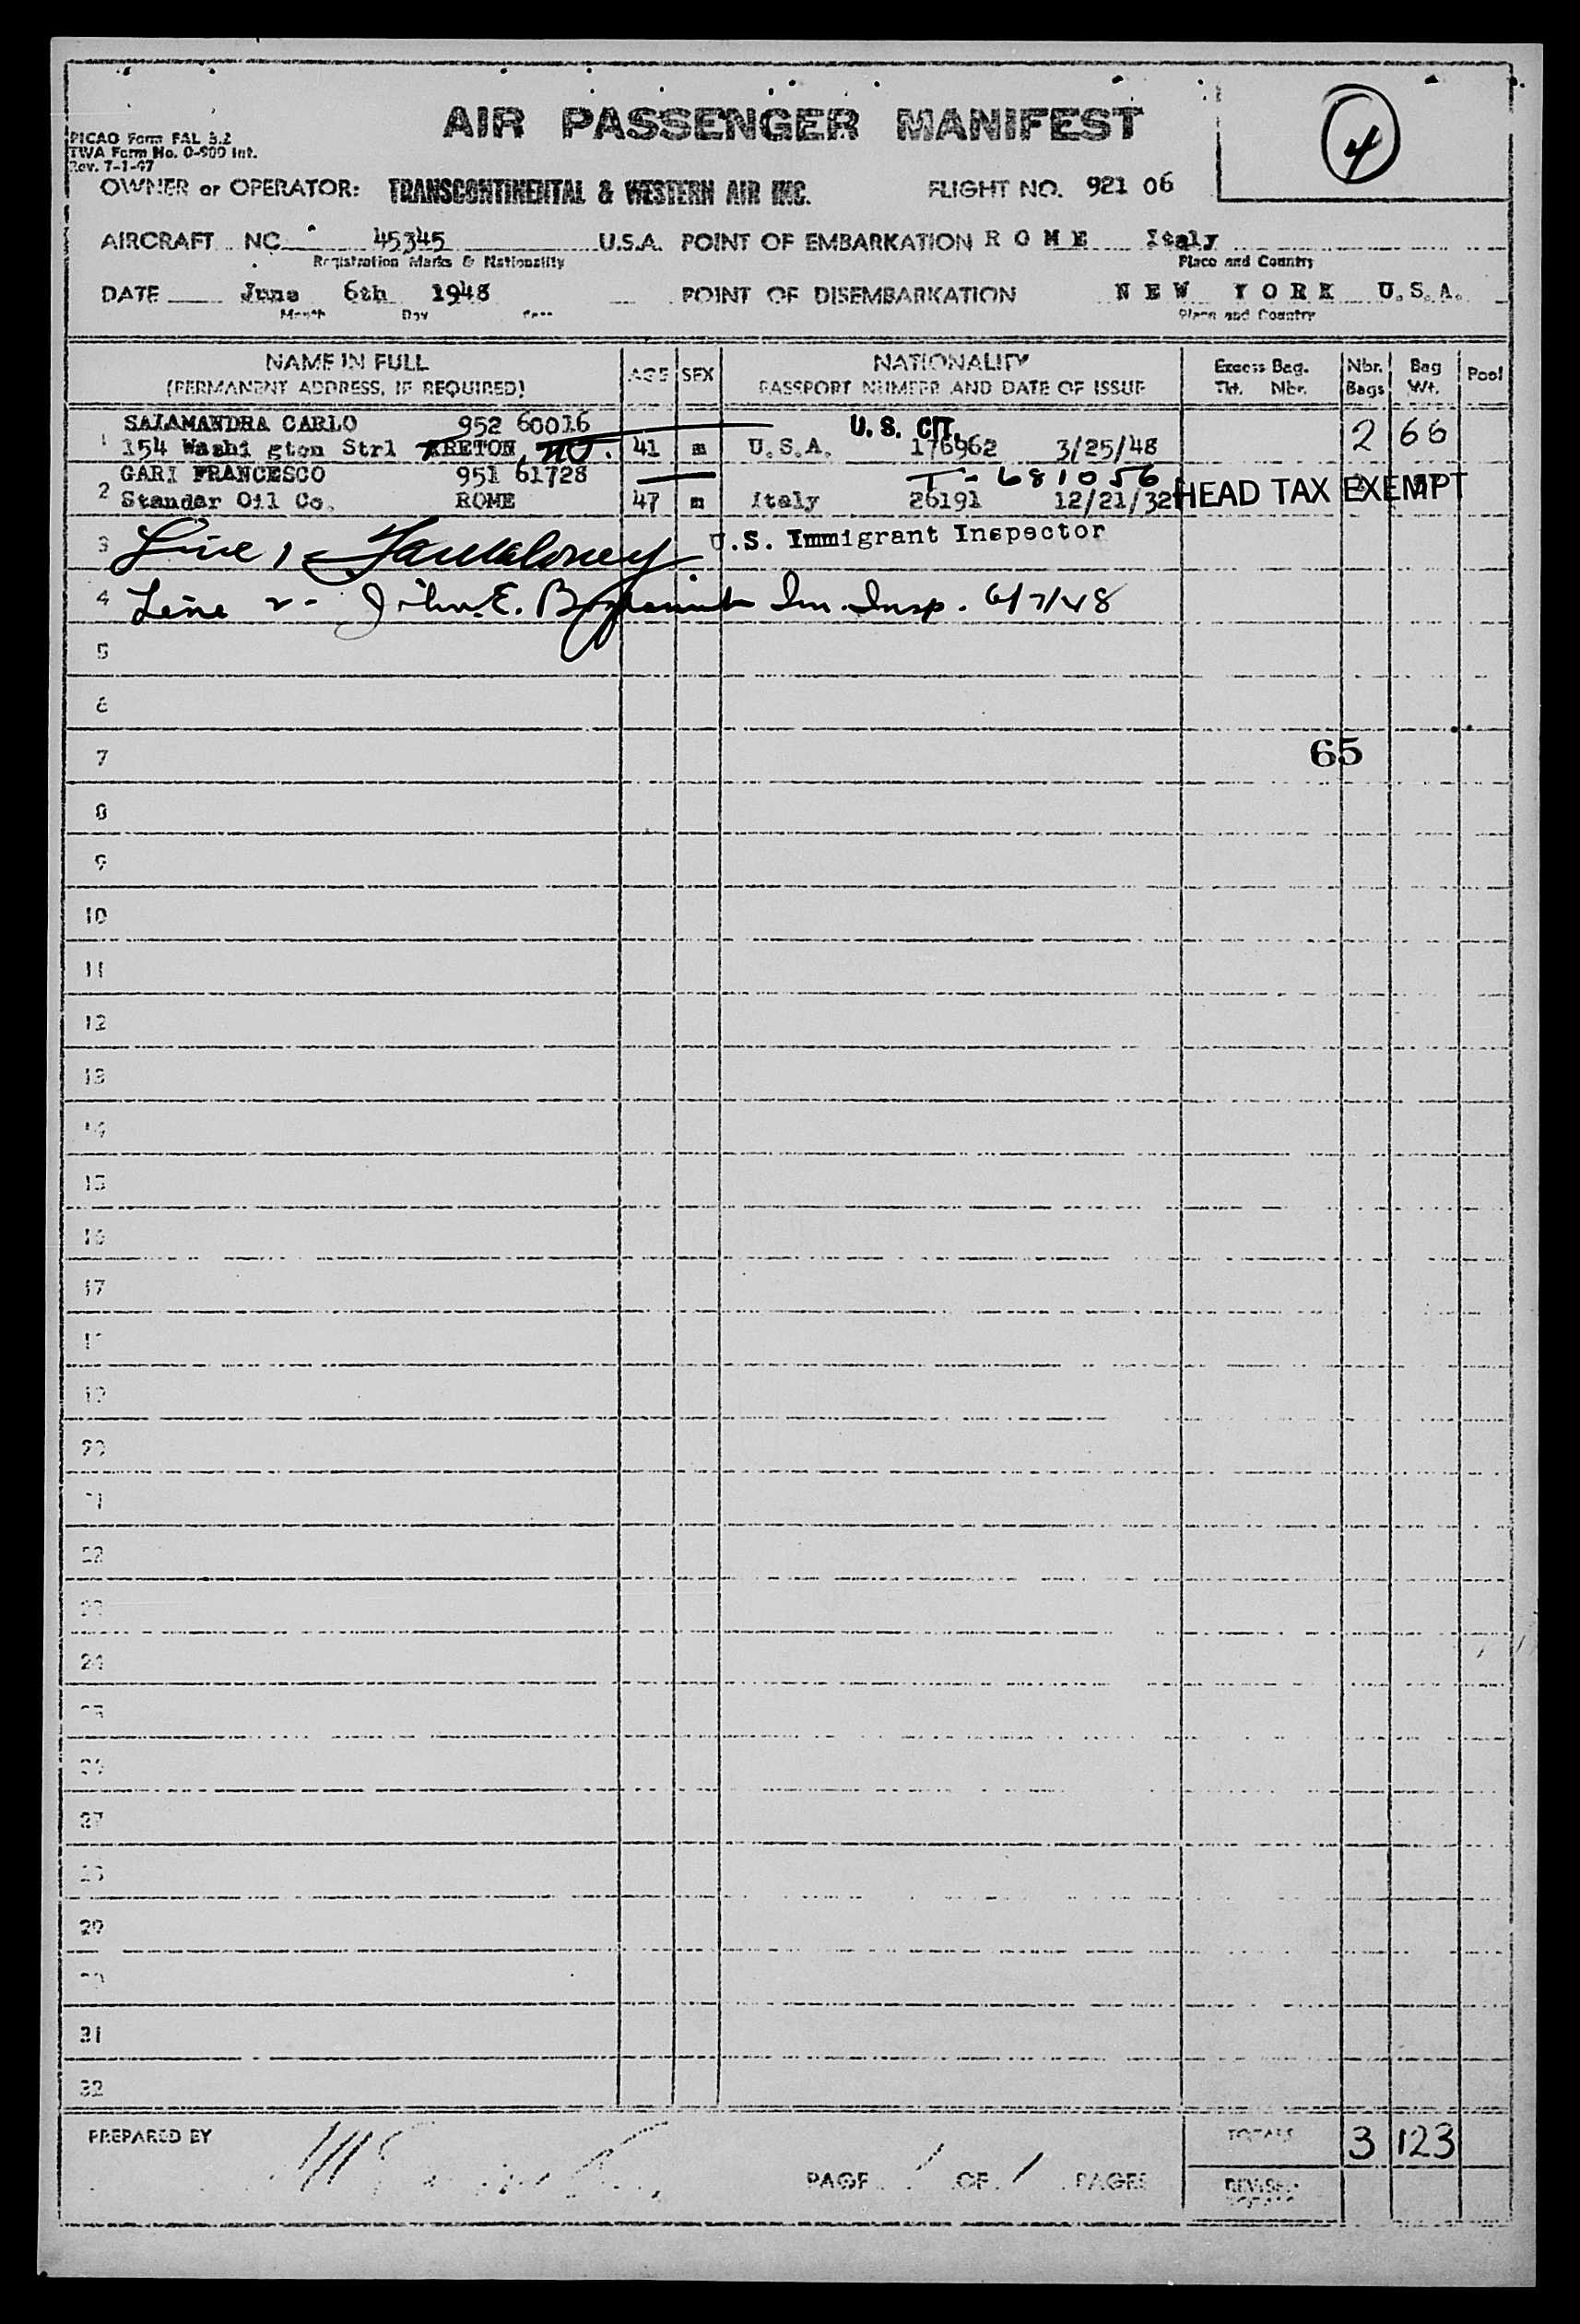 AIR PASSENGER MANIFEST
4
PICAO Form FAL 3.2
TWA Form No. O-900 Int.
Rev. 7-1-47
OWNER or OPERATOR: TRANSCONTINENTAL & WESTERN AIR INC. FLIGHT NO. 921 06
AIRCRAFT NC 45345 U.S.A. POINT OF EMBARKATION R O M E Italy
Registration Marks & Nationality Place and Country
DATE June 6th 1948 POINT OF DISEMBARKATION N E W Y O R K U.S.A.
Month Day Year Place and Country
NAME IN FULL AGE SEX NATIONALITY Excess Bag. Nbr. Bag Pool
(PERMANENT ADDRESS, IF REQUIRED) PASSPORT NUMBER AND DATE OF ISSUE Tkt. Nbr. Bags Wt.
SALAMANDRA CARLO 952 60016 U. S. CIT.
1 154 Washi gton Strl 41 m U.S.A. 176962 3/25/48 2 66
GARI FRANCESCO 951 61728 T-681056
2 Standar Oil Co. ROME 47 m Italy 26191 12/21/32 HEAD TAX EXEMPT
3 Line 1 U.S. Immigrant Inspector
4 Line 2- John E. Im. Insp. 6/7/48
5
6
7 65
8
9
10
11
12
13
14
15
16
17
19
20
22
24
27
29
31
32
PREPARED BY PAGE 1 OF 1 PAGES TOTALS 3 123